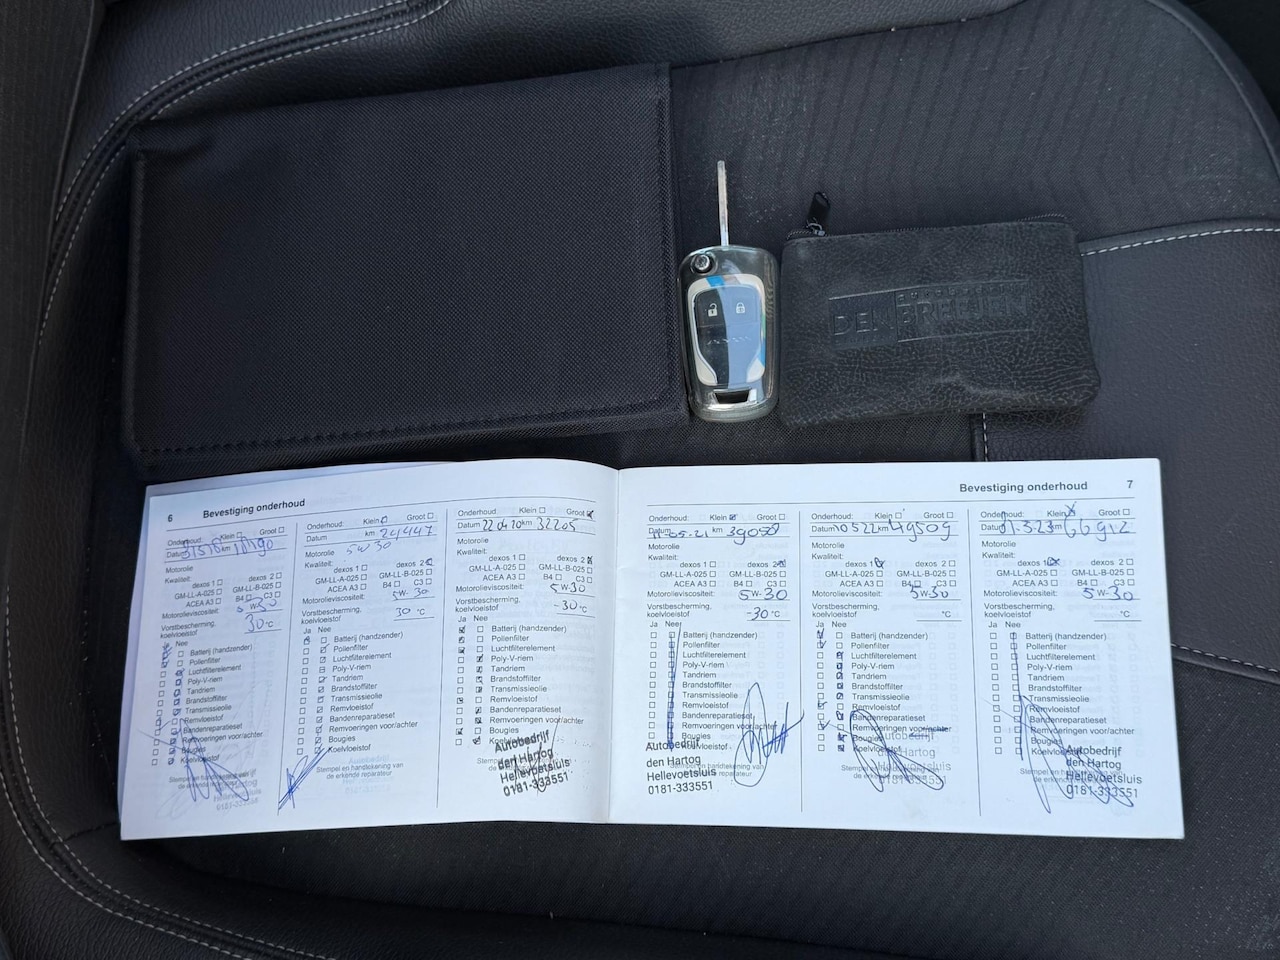 DEN BREEJEN
6 Bevestiging onderhoud
Onderhoud: Klein Groot
Datum km
Motorolie
Kwaliteit:
dexos 1 dexos 2
GM-LL-A-025 GM-LL-B-025
ACEA A3 B4 C3
Motorolieviscositeit: 5W-30
Vorstbescherming,
koelvloeistof 30 °C
Ja Nee
Batterij (handzender)
Pollenfilter
Luchtfilterelement
Poly-V-riem
Tandriem
Brandstoffilter
Transmissieolie
Remvloeistof
Bandenreparatieset
Remvoeringen voor/achter
Bougies
Koelvloeistof
Stempel en handtekening van
de erkende reparateur
0181-333551
Onderhoud: Klein Groot
Datum km 24447
Motorolie 5W30
Kwaliteit:
dexos 1 dexos 2
GM-LL-A-025 GM-LL-B-025
ACEA A3 B4 C3
Motorolieviscositeit: 5W-30
Vorstbescherming,
koelvloeistof 30 °C
Ja Nee
Batterij (handzender)
Pollenfilter
Luchtfilterelement
Poly-V-riem
Tandriem
Brandstoffilter
Transmissieolie
Remvloeistof
Bandenreparatieset
Remvoeringen voor/achter
Bougies
Koelvloeistof
Stempel en handtekening van
de erkende reparateur
Onderhoud: Klein Groot
Datum km 32205
Motorolie
Kwaliteit:
dexos 1 dexos 2
GM-LL-A-025 GM-LL-B-025
ACEA A3 B4 C3
Motorolieviscositeit: 5W-30
Vorstbescherming,
koelvloeistof -30 °C
Ja Nee
Batterij (handzender)
Pollenfilter
Luchtfilterelement
Poly-V-riem
Tandriem
Brandstoffilter
Transmissieolie
Remvloeistof
Bandenreparatieset
Remvoeringen voor/achter
Bougies
Koelvloeistof
Autobedrijf
den Hartog
Hellevoetsluis
0181-333551
Bevestiging onderhoud 7
Onderhoud: Klein Groot
Datum 11-05-21 km
Motorolie
Kwaliteit:
dexos 1 dexos 2
GM-LL-A-025 GM-LL-B-025
ACEA A3 B4 C3
Motorolieviscositeit: 5W-30
Vorstbescherming,
koelvloeistof -30 °C
Ja Nee
Batterij (handzender)
Pollenfilter
Luchtfilterelement
Poly-V-riem
Tandriem
Brandstoffilter
Transmissieolie
Remvloeistof
Bandenreparatieset
Remvoeringen voor/achter
Bougies
Koelvloeistof
Autobedrijf
den Hartog
Hellevoetsluis
0181-333551
Onderhoud: Klein Groot
Datum 10 5 22 km 49509
Motorolie
Kwaliteit:
dexos 1 dexos 2
GM-LL-A-025 GM-LL-B-025
ACEA A3 B4 C3
Motorolieviscositeit: 5W-30
Vorstbescherming,
koelvloeistof °C
Ja Nee
Batterij (handzender)
Pollenfilter
Luchtfilterelement
Poly-V-riem
Tandriem
Brandstoffilter
Transmissieolie
Remvloeistof
Bandenreparatieset
Remvoeringen voor/achter
Bougies
Koelvloeistof
Autobedrijf
den Hartog
Hellevoetsluis
0181-333551
Onderhoud: Klein Groot
Datum km 66912
Motorolie
Kwaliteit:
dexos 1 dexos 2
GM-LL-A-025 GM-LL-B-025
ACEA A3 B4 C3
Motorolieviscositeit: 5W-30
Vorstbescherming,
koelvloeistof °C
Ja Nee
Batterij (handzender)
Pollenfilter
Luchtfilterelement
Poly-V-riem
Tandriem
Brandstoffilter
Transmissieolie
Remvloeistof
Bandenreparatieset
Remvoeringen voor/achter
Bougies
Koelvloeistof
Autobedrijf
den Hartog
Hellevoetsluis
0181-333551